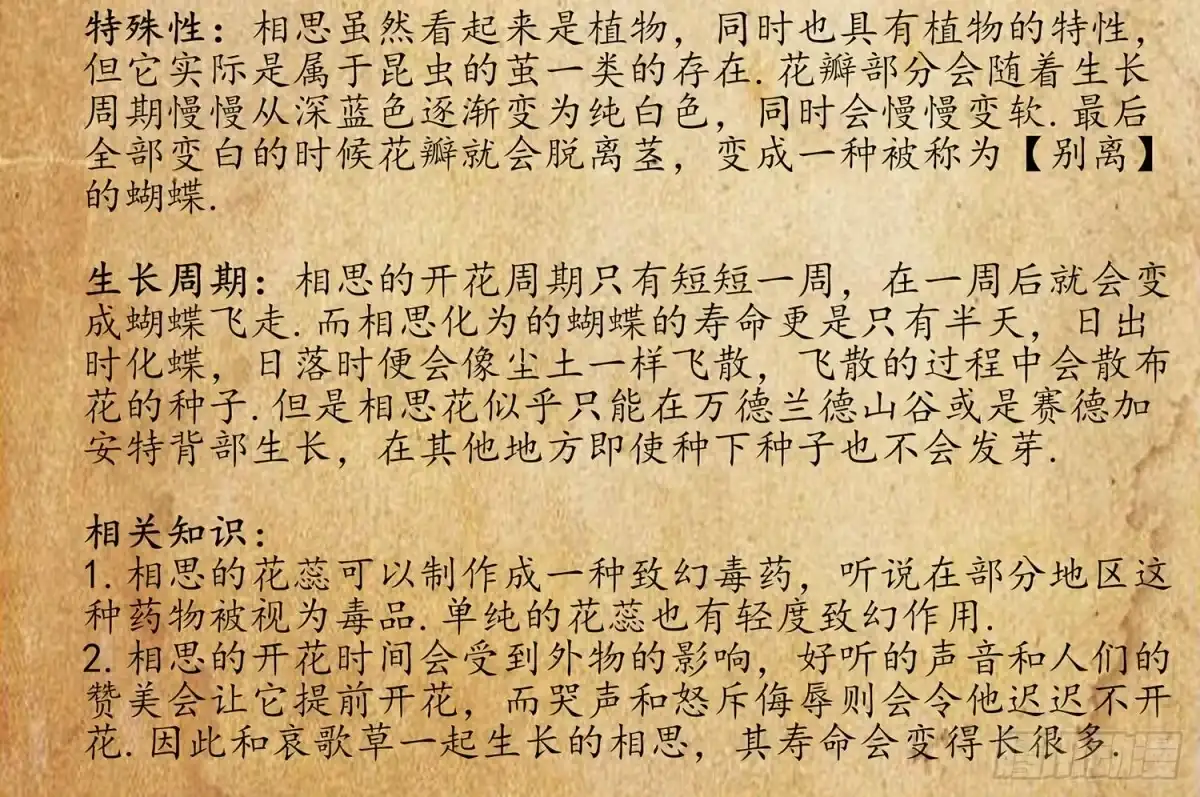 特殊性：相思虽然看起来是植物，同时也具有植物的特性，
但它实际是属于昆虫的茧一类的存在.花瓣部分会随着生长
周期慢慢从深蓝色逐渐变为纯白色，同时会慢慢变软.最后
全部变白的时候花瓣就会脱离茎，变成一种被称为【别离】
的蝴蝶.
生长周期：相思的开花周期只有短短一周，在一周后就会变
成蝴蝶飞走.而相思化为的蝴蝶的寿命更是只有半天，日出
时化蝶，日落时便会像尘土一样飞散，飞散的过程中会散布
花的种子.但是相思花似乎只能在万德兰德山谷或是赛德加
安特背部生长，在其他地方即使种下种子也不会发芽.
相关知识：
1.相思的花蕊可以制作成一种致幻毒药，听说在部分地区这
种药物被视为毒品.单纯的花蕊也有轻度致幻作用.
2.相思的开花时间会受到外物的影响，好听的声音和人们的
赞美会让它提前开花，而哭声和怒斥侮辱则会令他迟迟不开
花.因此和哀歌草一起生长的相思，其寿命会变得长很多.